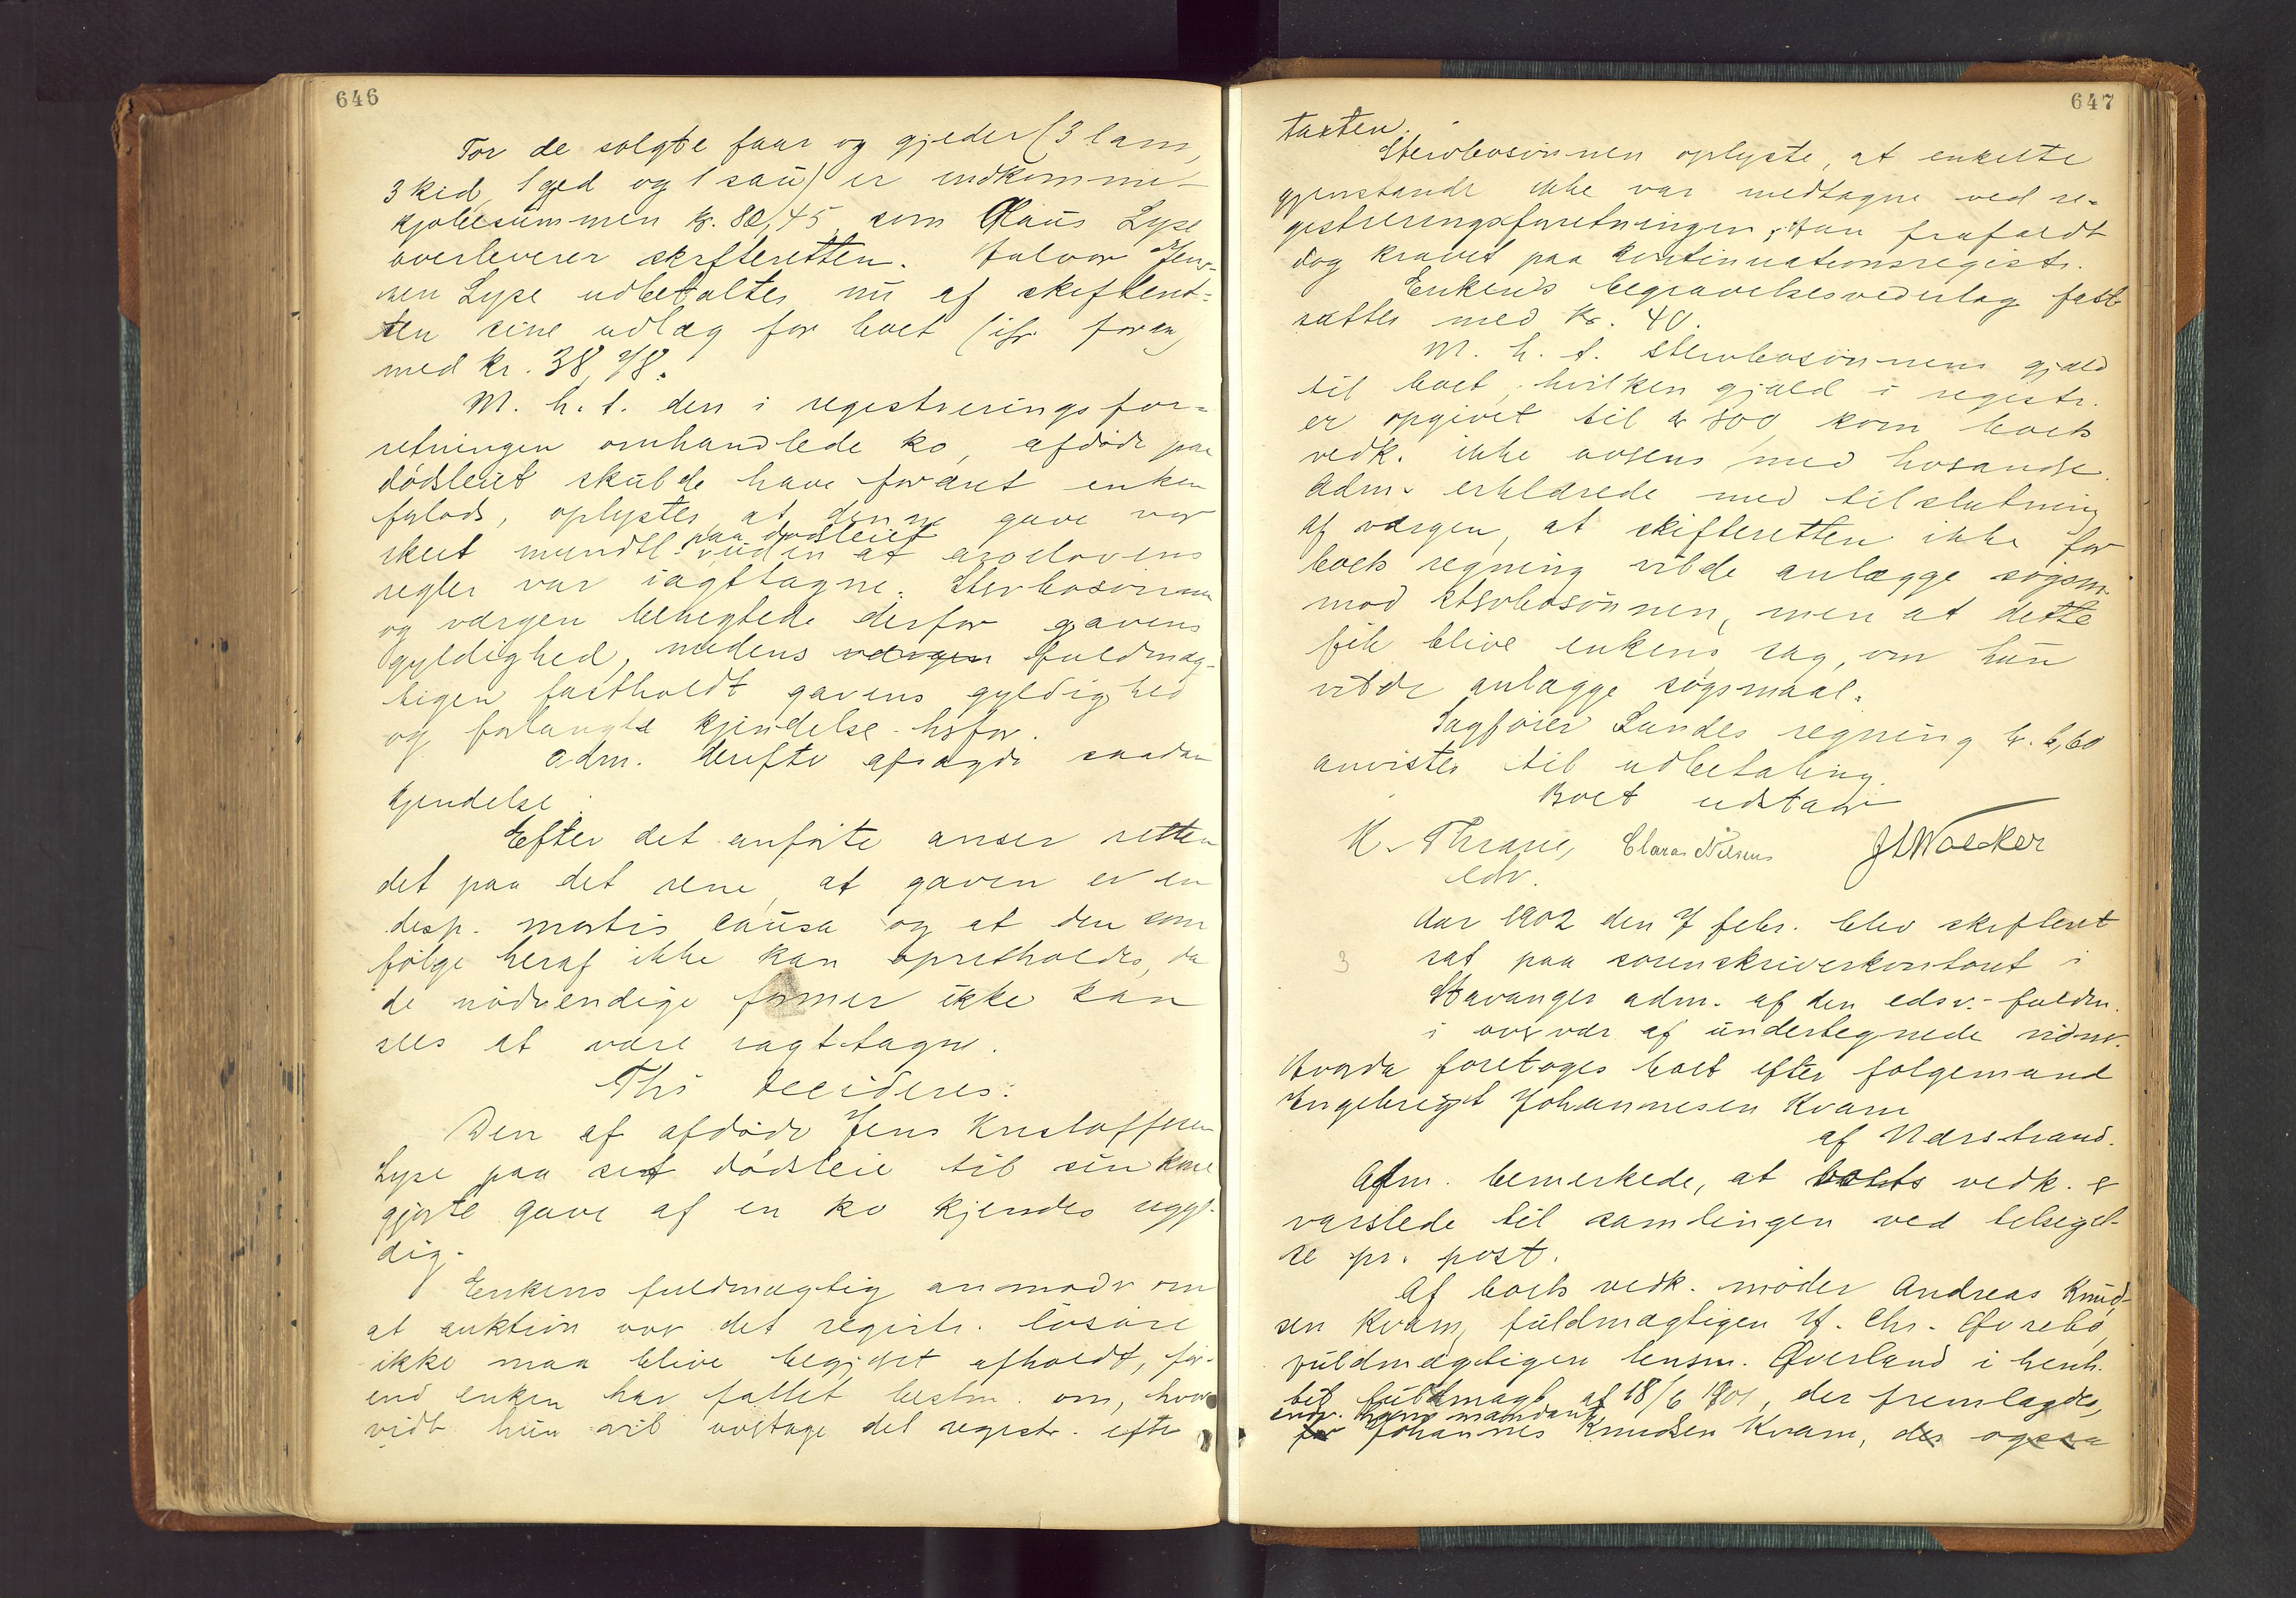 646
For de solgte faar og gjeder (3 lam,
3 kid, 1 gjed og 1 sau) er indkomme
kjøbesummen kr. 80,45, som Claus Lyse
overleverer skifteretten. Halvor Jen-
sen Lyse udbetaltes nu af skifteret-
ten sine udlæg for boet (ifr foran)
med kr. 38,78.
M. h. t. den i registreringsfor-
retningen omhandlede ko, afdøde paa
dødsleiet skulde have foræret enken
forlods, oplystes at denne gave var
skeet mundtl. paa dødsleiet uden at arvelovens
regler var iagttagne. Stervbosønnen
og værgen benegtede derfor gavens
gyldighed, medens værgen fuldmæg-
tigen fastholdt gavens gyldighed
og forlangte kjendelse hsfor.
Adm. derefter afsagde saadan
kjendelse:
Efter det anførte anser retten
det paa det rene, at gaven er en
desp. mortis causa og at den som
følge heraf ikke kan opretholdes, da
de nødvendige former ikke kan
sees at være iagttagne.
Thi decideres:
Den af afdøde Jens Kristoffersen
Lyse paa sit dødsleie til sin kone
gjorte gave af en ko kjendes ugyl-
dig.
Enkens fuldmægtig anmode om
at auktion over det registr. løsøre
ikke maa blive begjæret afholdt, før-
end enken har fattet bestm. om, hvor
vidt hun vil overtage det registr. efter
647
taxten.
Stervbosønnen oplyste, at enkelte
gjenstande ikke var medtagne ved re-
gistreringsforretningen; han frafaldt
dog kravet paa kontinuationsregistr.
Enkens begravelsesvederlag fast-
sattes med kr. 40.
M. h. t. stervbosønnens gjæld
til boet, hvilken gjæld i registr.
er opgivet til kr 800, kom boets
vedk. ikke overens med hverandre.
Adm. erklærede med tilslutning
af værgen, at skifteretten ikke for
boets regning vilde anlægge søgsm.
mod stervbosønnen, men at dette
fik blive enkens sag, om hun
vilde anlægge søgsmaal.
Sagfører Lundes regning kr. 6,60
anvistes til udbetaling.
Boet udstaar
K. Thrane, Clara Nilsens
edv.
Aar 1902 den 7 febr. blev skifteret
3 sat paa sorenskriverkontoret i
Stavanger adm. af den edsv. fuldm.
i overvær af undertegnede vidner.
Hvorda foretoges boet efter følgemand
Engebregt Johannesen Kvam
af Nærstrand.
Adm. bemerkede, at boets vedk. er
varslede til samlingen ved tilsigel-
se pr. post.
Af boets vedk. møder Andreas Knud-
sen Kvam, fuldmægtigen H. Chr. Øvrebø,
fuldmægtigen lensm. Øverland i henh.
til fuldmagt af 18/6 1901, der fremlagdes,
endv. hans mandant
for Johannes Knudsen Kvam, der ogsaa